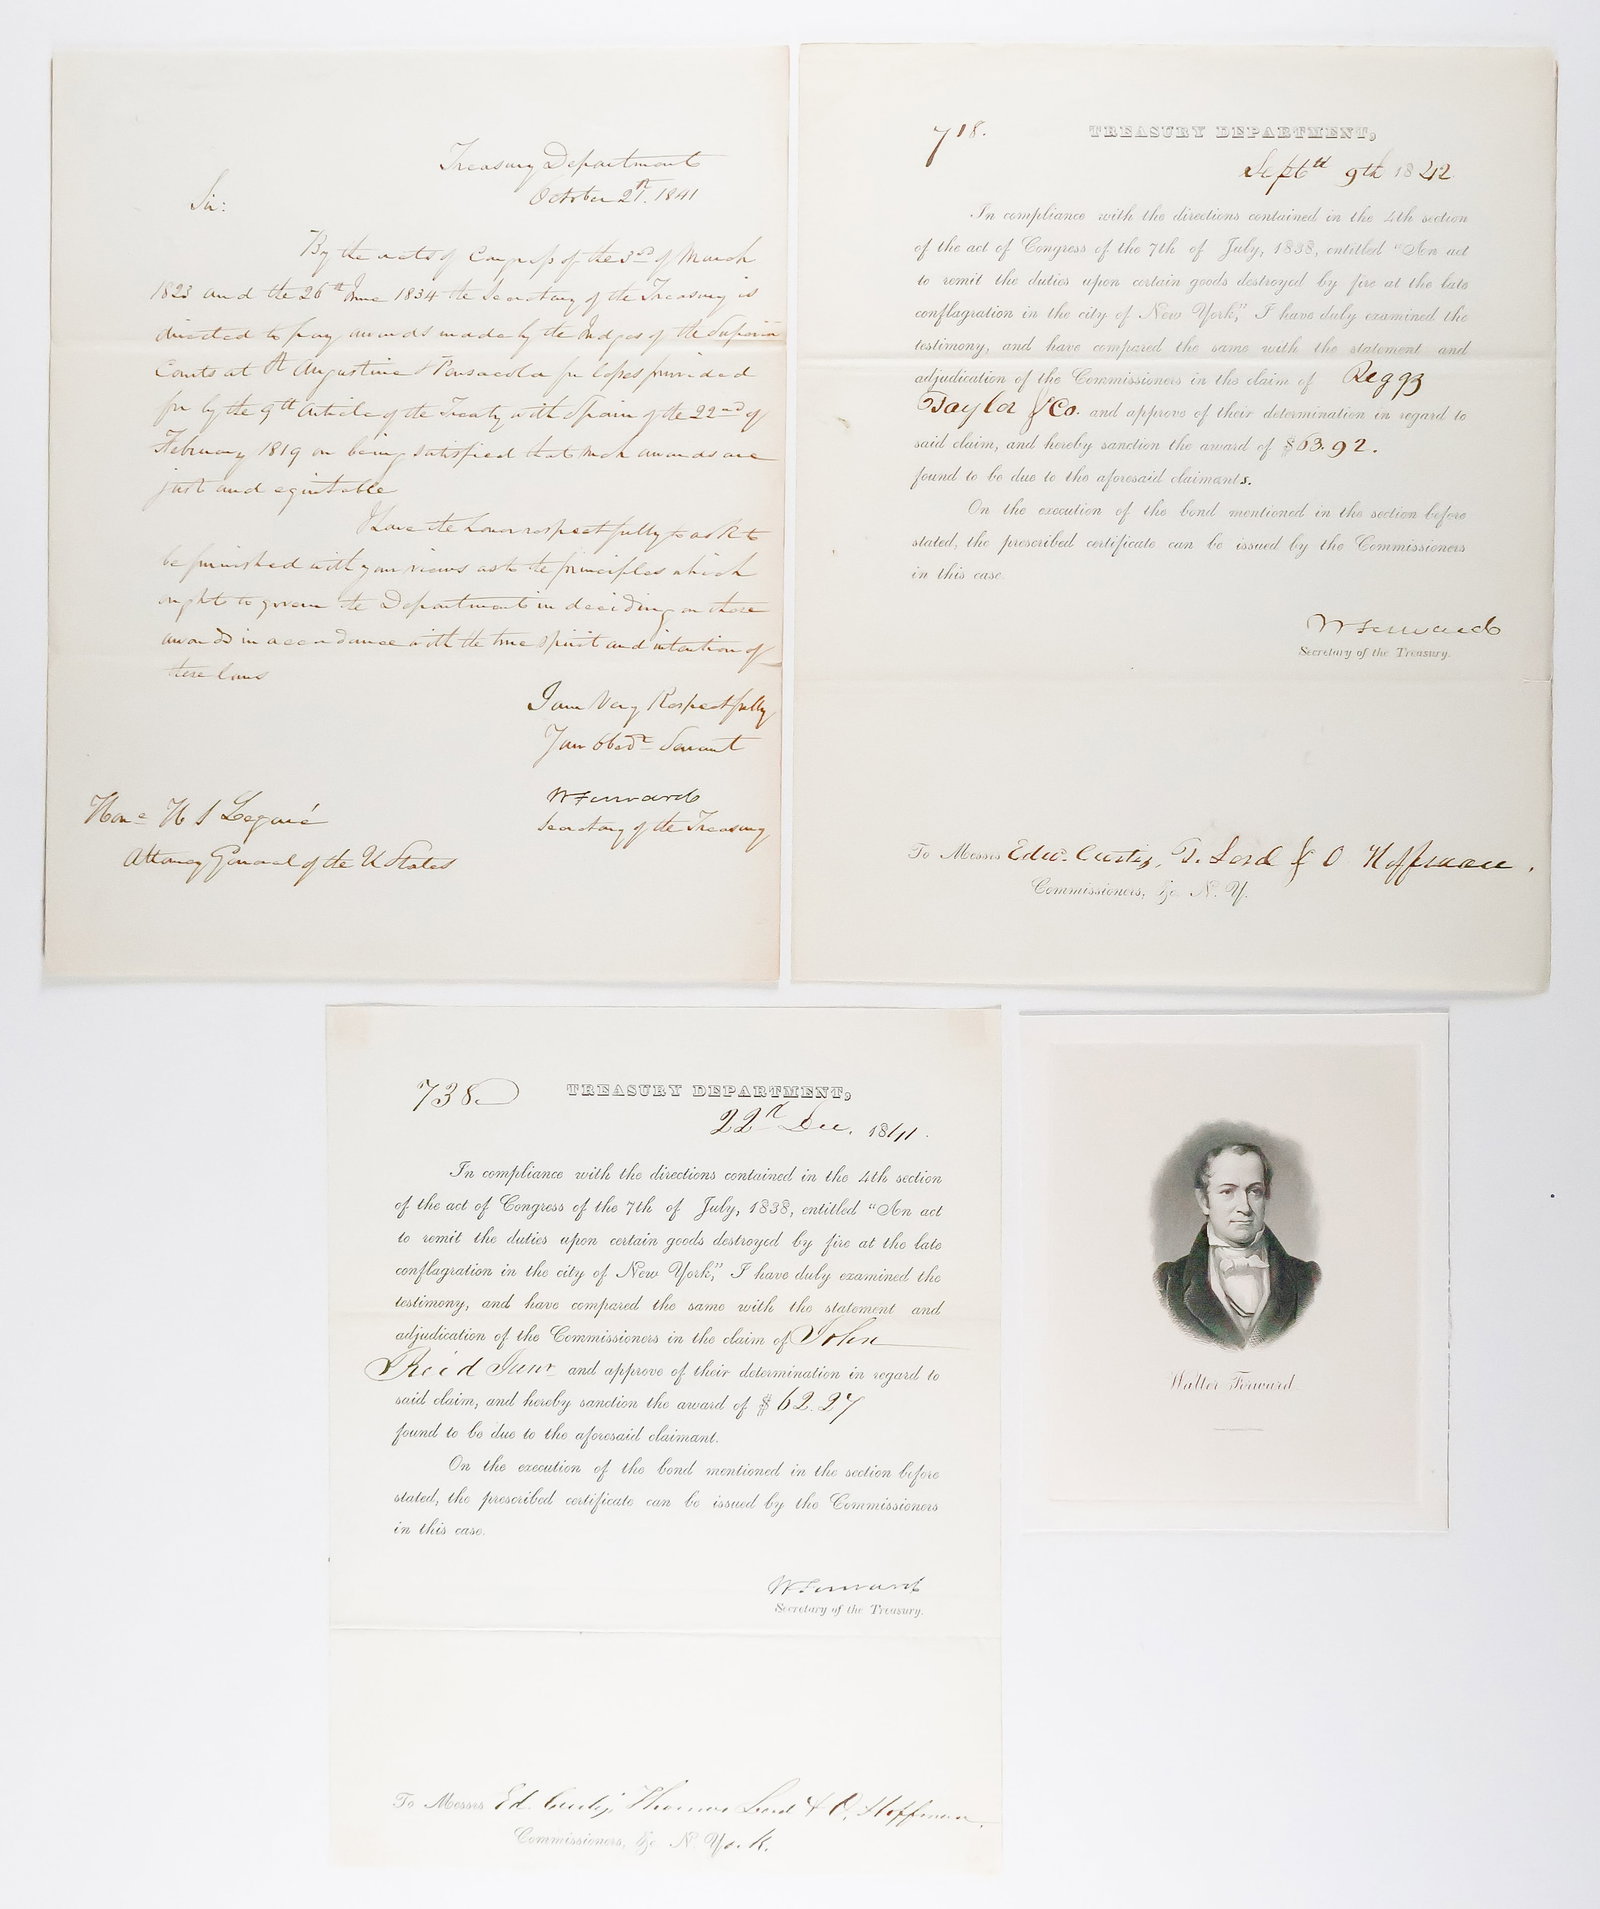 Treasury Department
October 21st. 1841
Sir:
By the acts of Congress of the 3rd of March
1823 and the 26th June 1834 the Secretary of the Treasury is
directed to pay awards made by the Judges of the Superior
Courts at St Augustine & Pensacola for losses provided
for by the 9th Article of the Treaty with Spain of the 22nd of
February 1819 on being satisfied that such awards are
just and equitable
I have the honor respectfully to ask to
be furnished with your views as to the principles which
ought to govern the Department in deciding on these
awards in accordance with the true spirit and intention of
these laws
I am Very Respectfully
Your Obedt Servant
W Forward
Secretary of the Treasury
Hone H S Legaré
Attorney General of the U States
718.
TREASURY DEPARTMENT,
Sept 9th 1842
In compliance with the directions contained in the 4th section
of the act of Congress of the 7th of July, 1838, entitled "An act
to remit the duties upon certain goods destroyed by fire at the late
conflagration in the city of New York," I have duly examined the
testimony, and have compared the same with the statement and
adjudication of the Commissioners in the claim of
Taylor & Co. and approve of their determination in regard to
said claim, and hereby sanction the award of $63.92.
found to be due to the aforesaid claimants.
On the execution of the bond mentioned in the section before
stated, the prescribed certificate can be issued by the Commissioners
in this case.
W Forward
Secretary of the Treasury.
To Messrs Edw. Curtis, T. Lord & O Hoffman.
Commissioners, &c N. Y.
738
TREASURY DEPARTMENT,
22d Dec. 1841.
In compliance with the directions contained in the 4th section
of the act of Congress of the 7th of July, 1838, entitled "An act
to remit the duties upon certain goods destroyed by fire at the late
conflagration in the city of New York," I have duly examined the
testimony, and have compared the same with the statement and
adjudication of the Commissioners in the claim of John
Reid Junr and approve of their determination in regard to
said claim, and hereby sanction the award of $62.27
found to be due to the aforesaid claimant.
On the execution of the bond mentioned in the section before
stated, the prescribed certificate can be issued by the Commissioners
in this case.
W Forward
Secretary of the Treasury.
To Messrs Ed. Curtis, Thomas Lord & O. Hoffman.
Commissioners, &c N. York.
Walter Forward